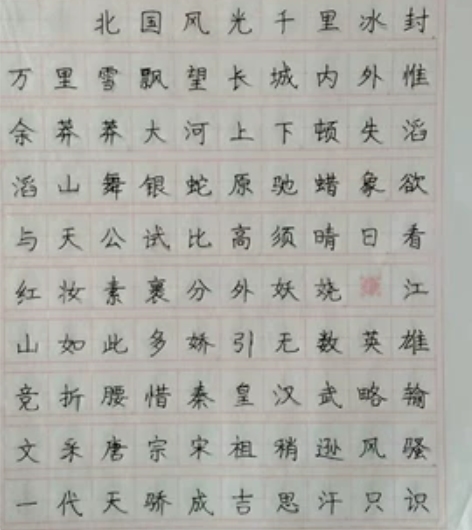 北国风光千里冰封
万里雪飘望长城内外惟
余莽莽大河上下顿失滔
滔山舞银蛇原驰蜡象欲
与天公试比高须晴日看
红妆素裹分外妖娆江
山如此多娇引无数英雄
竞折腰惜秦皇汉武略输
文采唐宗宋祖稍逊风骚
一代天骄成吉思汗只识